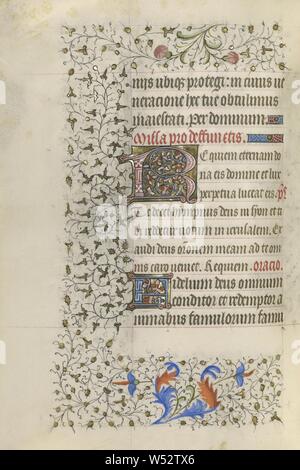 nijs ubiqz protegi: in cuius ue
neracione hec tue obtulimus
maiestati. Per dominum
Missa pro deffunctis.
Requiem eternam do
na eis domine et lux
perpetua luceat eis. ps.
Te decet hympnus deus in syon et ti
bi reddetur votum in iherusalem. Ex
audi deus oronem meam ad te om
nis caro veniet. Requiem. oracio.
Fidelium deus omnium
conditor et redemptor a
nimabus famulorum famu
alamy
W52TX6